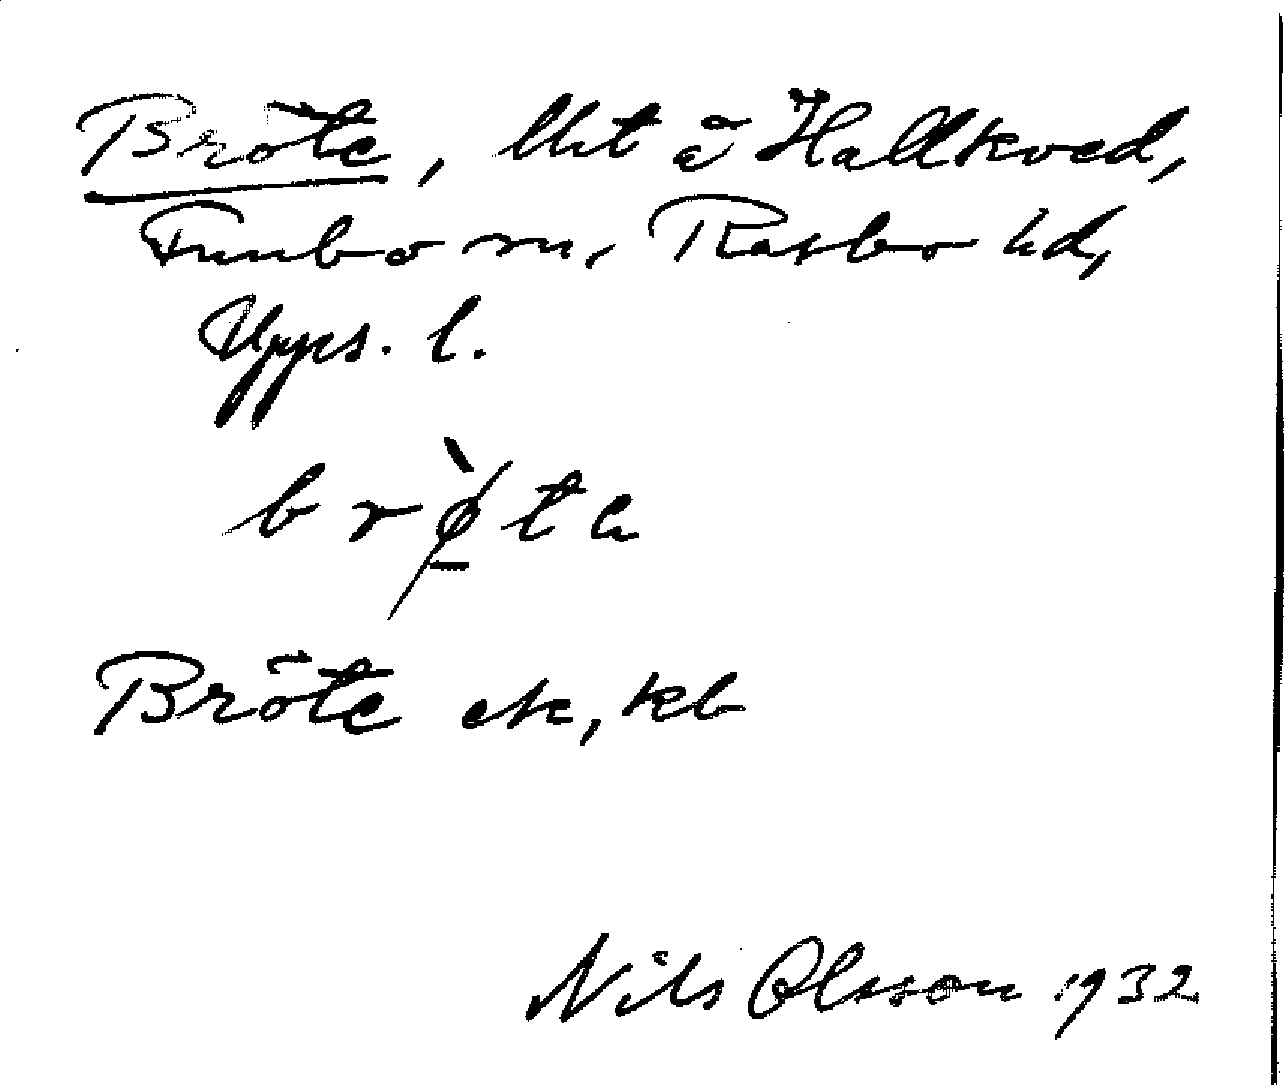 Bröte, lht å Hallkved,
Funbo sn, Rasbo hd,
Upps. l.
brø̀ta
Bröte ek, kb
Nils Olsson 1932